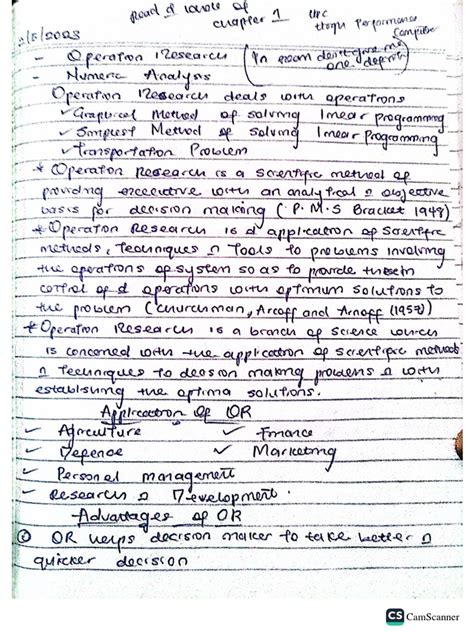 Read d whole of
chapter 1
HPC
High Performance
Computer
2/5/2023
- Operation Research (In exam don't give me one definition)
- Numeric Analysis
Operation Research deals with operations
✓ Graphical Method of solving linear programming
✓ Simplest Method of solving linear programming
✓ Transportation Problem
* Operation Research is a scientific method of
providing executive with an analytical n objective
basis for decision making (P.M.S Bracket 1948)
* Operation Research is d application of scientific
methods, Techniques n Tools to problems involving
the operations of system so as to provide these in
control of d operations with optimum solutions to
the problem (Churchman, Arcoff and Arnoff (1957)
* Operation Research is a branch of science which
is concerned with the application of scientific methods
n Techniques to decision making problems n with
establishing the optima solutions.
Application of OR
✓ Agriculture ✓ Finance
✓ Defence ✓ Marketing
✓ Personel management
✓ Research n Development.
Advantages of OR
① OR helps decision maker to take better n
quicker decision
CS CamScanner